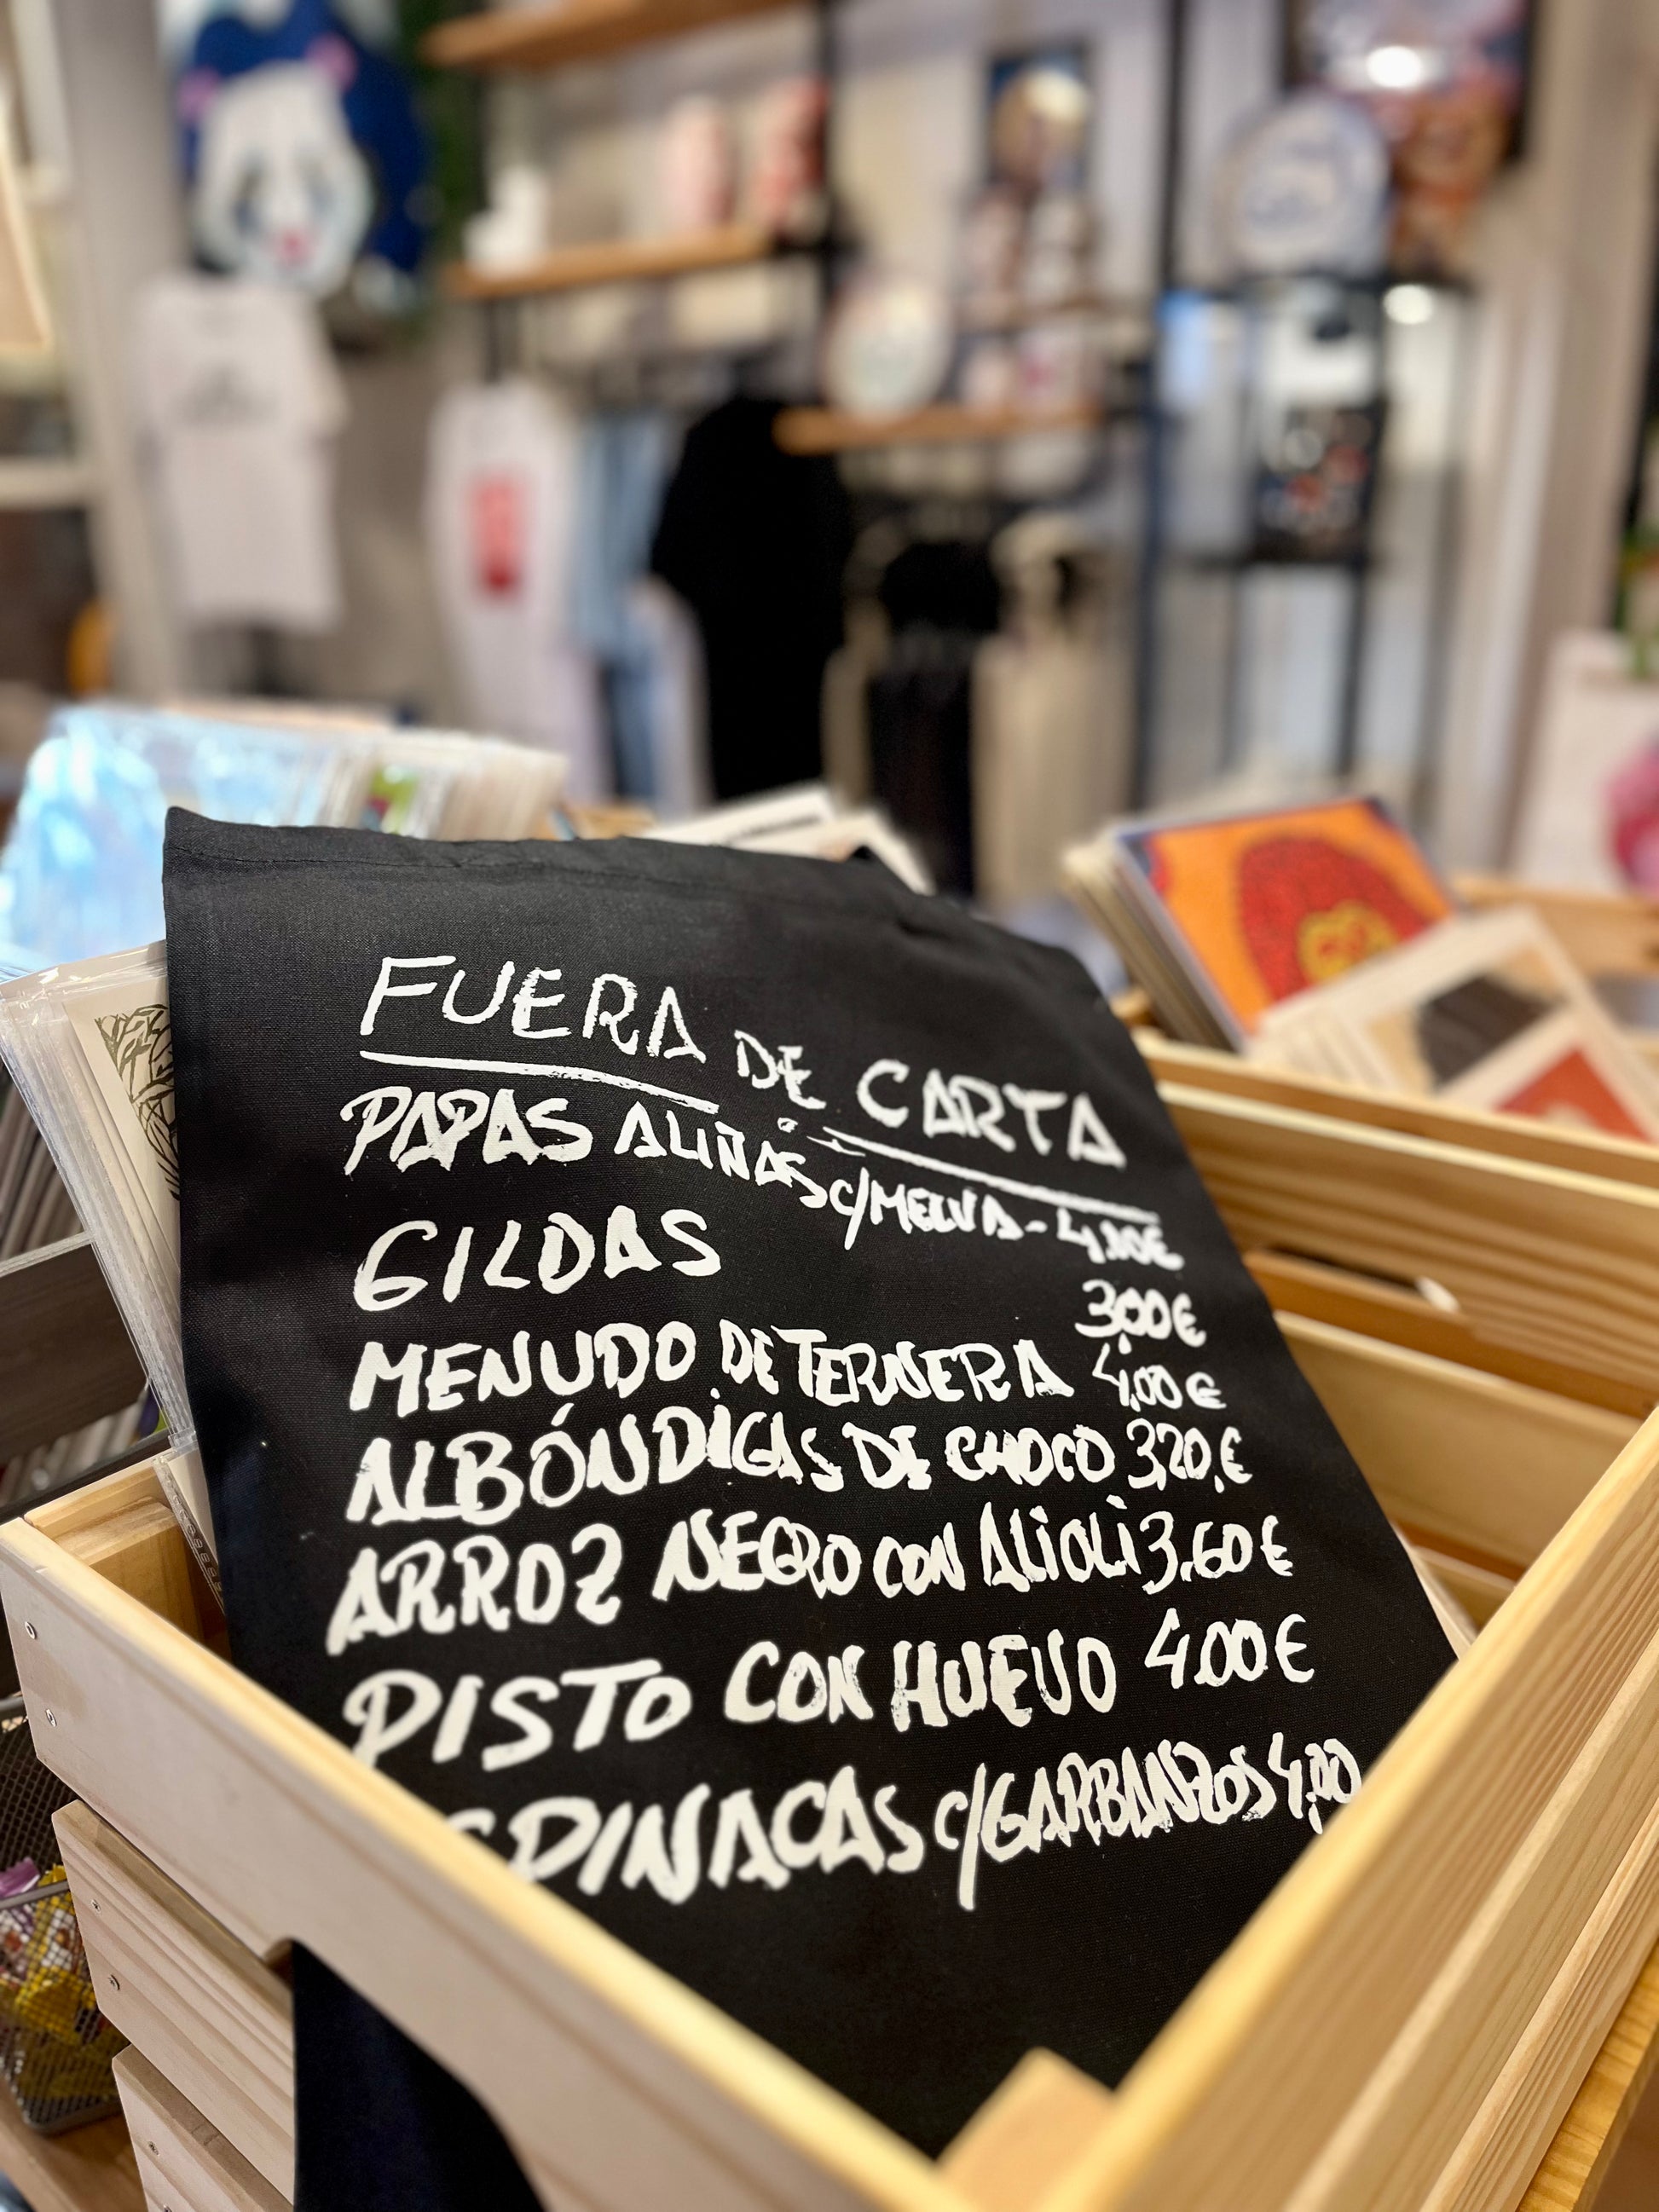 FUERA DE CARTA
PAPAS ALIÑÁS C/MELVA - 4,00€
GILDAS 3,00€
MENUDO DE TERNERA 4,00€
ALBÓNDIGAS DE CHOCO 3,20,€
ARROZ NEGRO CON ALIOLI 3,60€
PISTO CON HUEVO 4,00€
SPINACAS C/GARBANZOS 4,00